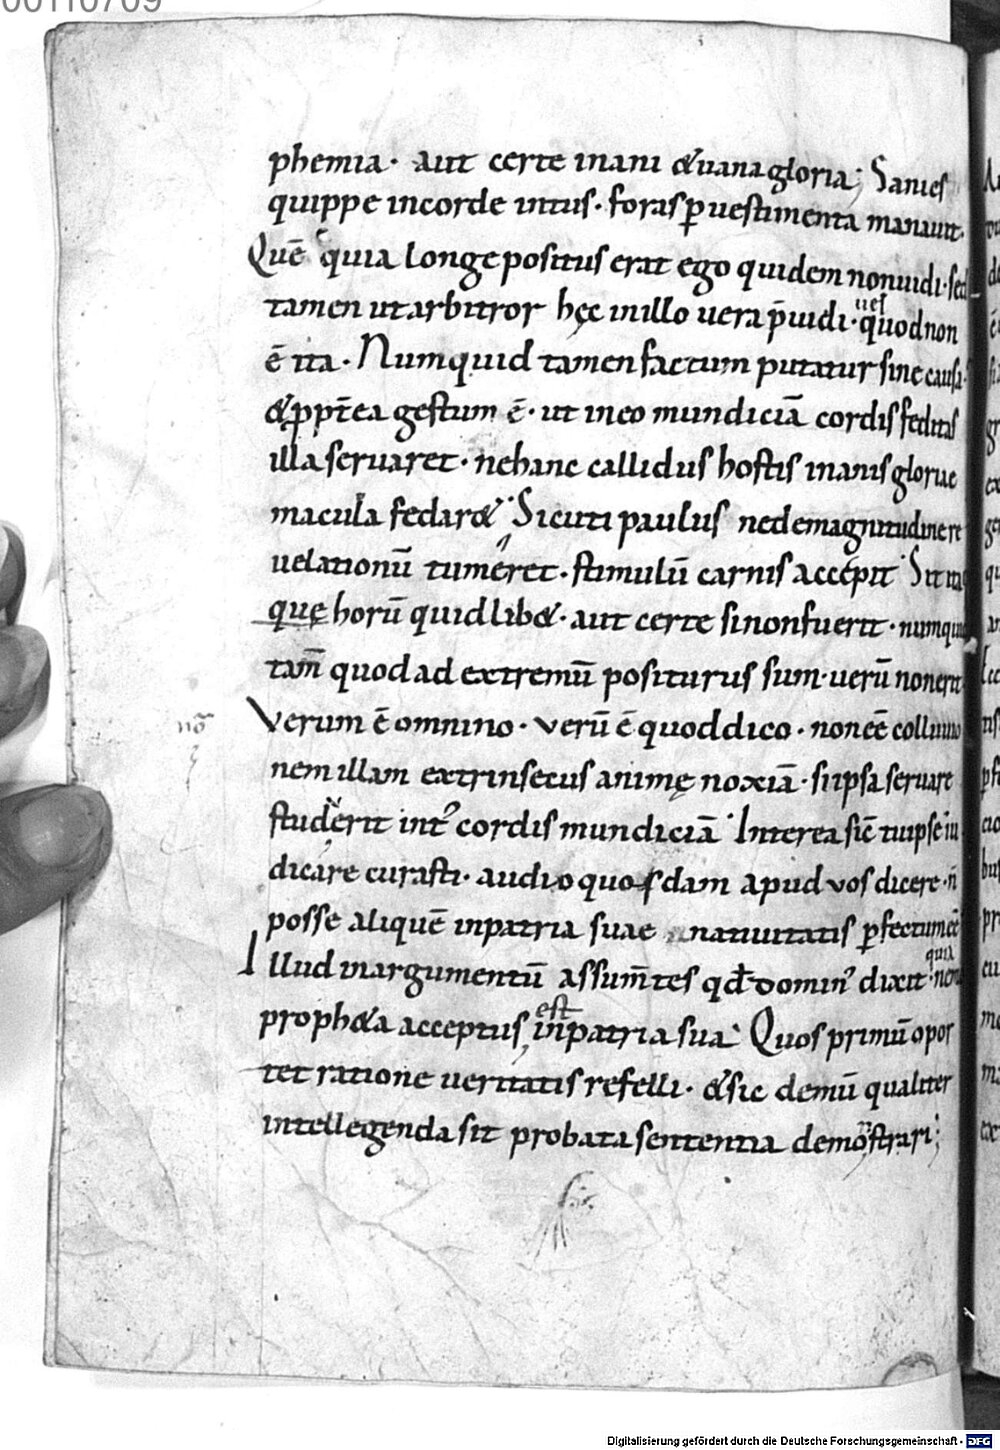 00110709
phemia · aut certe inani &uana gloria; Sanies
quippe incorde intus · foras ꝑuestimenta manauit ·
Quē quia longe positus erat ego quidem nonuidi · sed
tamen ut arbitror hęc inillo uera p̄uidi · uel quod non
ē ita · Numquid tamen factum putatur sine causa ·
&ppt̄ea gestum ē · ut ineo mundiciā cordis feditas
illa seruaret · nehanc callidus hostis inanis gloriae
macula fedar& · Sicuti paulus nedemagnitudine re
uelationū tumeret · stimulū carnis accepit · Sit ita
quę horū quidlib& · aut certe sinonfuerit · numqui
tam̄ quod ad extremū positurus sum · uerū nonerit
Verum ē omnino · verū ē quod dico · non eē colluuio
nō
nem illam extrinsecus animę noxiā · si ipsa seruare
studuerit int̉ cordis mundiciā · Interea sic̄ tu ipse iu
dicare curasti · audio quosdam apud vos dicere · n̄
posse aliquē inpatria suae natiuitatis ꝑfectum eē
Illud inargumentū assum̄tes qđ domin̉ dixit · quia nemo
proph&a acceptus est inpatria sua · Quos primū opor
tet ratione ueritatis refelli · &sic demū qualiter
intellegenda sit probata sententia demōstrari;
Digitalisierung gefördert durch die Deutsche Forschungsgemeinschaft - DFG